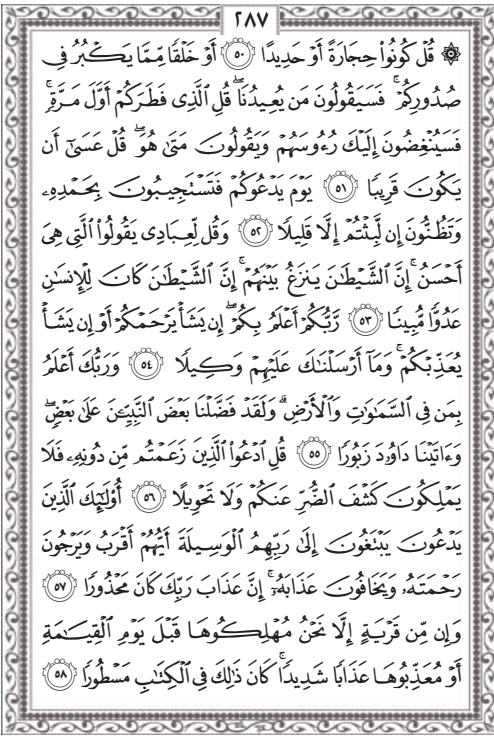 ٢٨٧
۞ قُلْ كُونُوا۟ حِجَارَةً أَوْ حَدِيدًا ٥٠ أَوْ خَلْقًا مِّمَّا يَكْبُرُ فِى
صُدُورِكُمْ ۚ فَسَيَقُولُونَ مَن يُعِيدُنَا ۖ قُلِ ٱلَّذِى فَطَرَكُمْ أَوَّلَ مَرَّةٍ ۚ
فَسَيُنْغِضُونَ إِلَيْكَ رُءُوسَهُمْ وَيَقُولُونَ مَتَىٰ هُوَ ۖ قُلْ عَسَىٰٓ أَن
يَكُونَ قَرِيبًا ٥١ يَوْمَ يَدْعُوكُمْ فَتَسْتَجِيبُونَ بِحَمْدِهِۦ
وَتَظُنُّونَ إِن لَّبِثْتُمْ إِلَّا قَلِيلًا ٥٢ وَقُل لِّعِبَادِى يَقُولُوا۟ ٱلَّتِى هِىَ
أَحْسَنُ ۚ إِنَّ ٱلشَّيْطَـٰنَ يَنزَغُ بَيْنَهُمْ ۚ إِنَّ ٱلشَّيْطَـٰنَ كَانَ لِلْإِنسَـٰنِ
عَدُوًّا مُّبِينًا ٥٣ رَّبُّكُمْ أَعْلَمُ بِكُمْ ۖ إِن يَشَأْ يَرْحَمْكُمْ أَوْ إِن يَشَأْ
يُعَذِّبْكُمْ ۚ وَمَآ أَرْسَلْنَـٰكَ عَلَيْهِمْ وَكِيلًا ٥٤ وَرَبُّكَ أَعْلَمُ
بِمَن فِى ٱلسَّمَـٰوَٰتِ وَٱلْأَرْضِ ۗ وَلَقَدْ فَضَّلْنَا بَعْضَ ٱلنَّبِيِّـۧنَ عَلَىٰ بَعْضٍ ۖ
وَءَاتَيْنَا دَاوُۥدَ زَبُورًا ٥٥ قُلِ ٱدْعُوا۟ ٱلَّذِينَ زَعَمْتُم مِّن دُونِهِۦ فَلَا
يَمْلِكُونَ كَشْفَ ٱلضُّرِّ عَنكُمْ وَلَا تَحْوِيلًا ٥٦ أُو۟لَـٰٓئِكَ ٱلَّذِينَ
يَدْعُونَ يَبْتَغُونَ إِلَىٰ رَبِّهِمُ ٱلْوَسِيلَةَ أَيُّهُمْ أَقْرَبُ وَيَرْجُونَ
رَحْمَتَهُۥ وَيَخَافُونَ عَذَابَهُۥٓ ۚ إِنَّ عَذَابَ رَبِّكَ كَانَ مَحْذُورًا ٥٧
وَإِن مِّن قَرْيَةٍ إِلَّا نَحْنُ مُهْلِكُوهَا قَبْلَ يَوْمِ ٱلْقِيَـٰمَةِ
أَوْ مُعَذِّبُوهَا عَذَابًا شَدِيدًا ۚ كَانَ ذَٰلِكَ فِى ٱلْكِتَـٰبِ مَسْطُورًا ٥٨